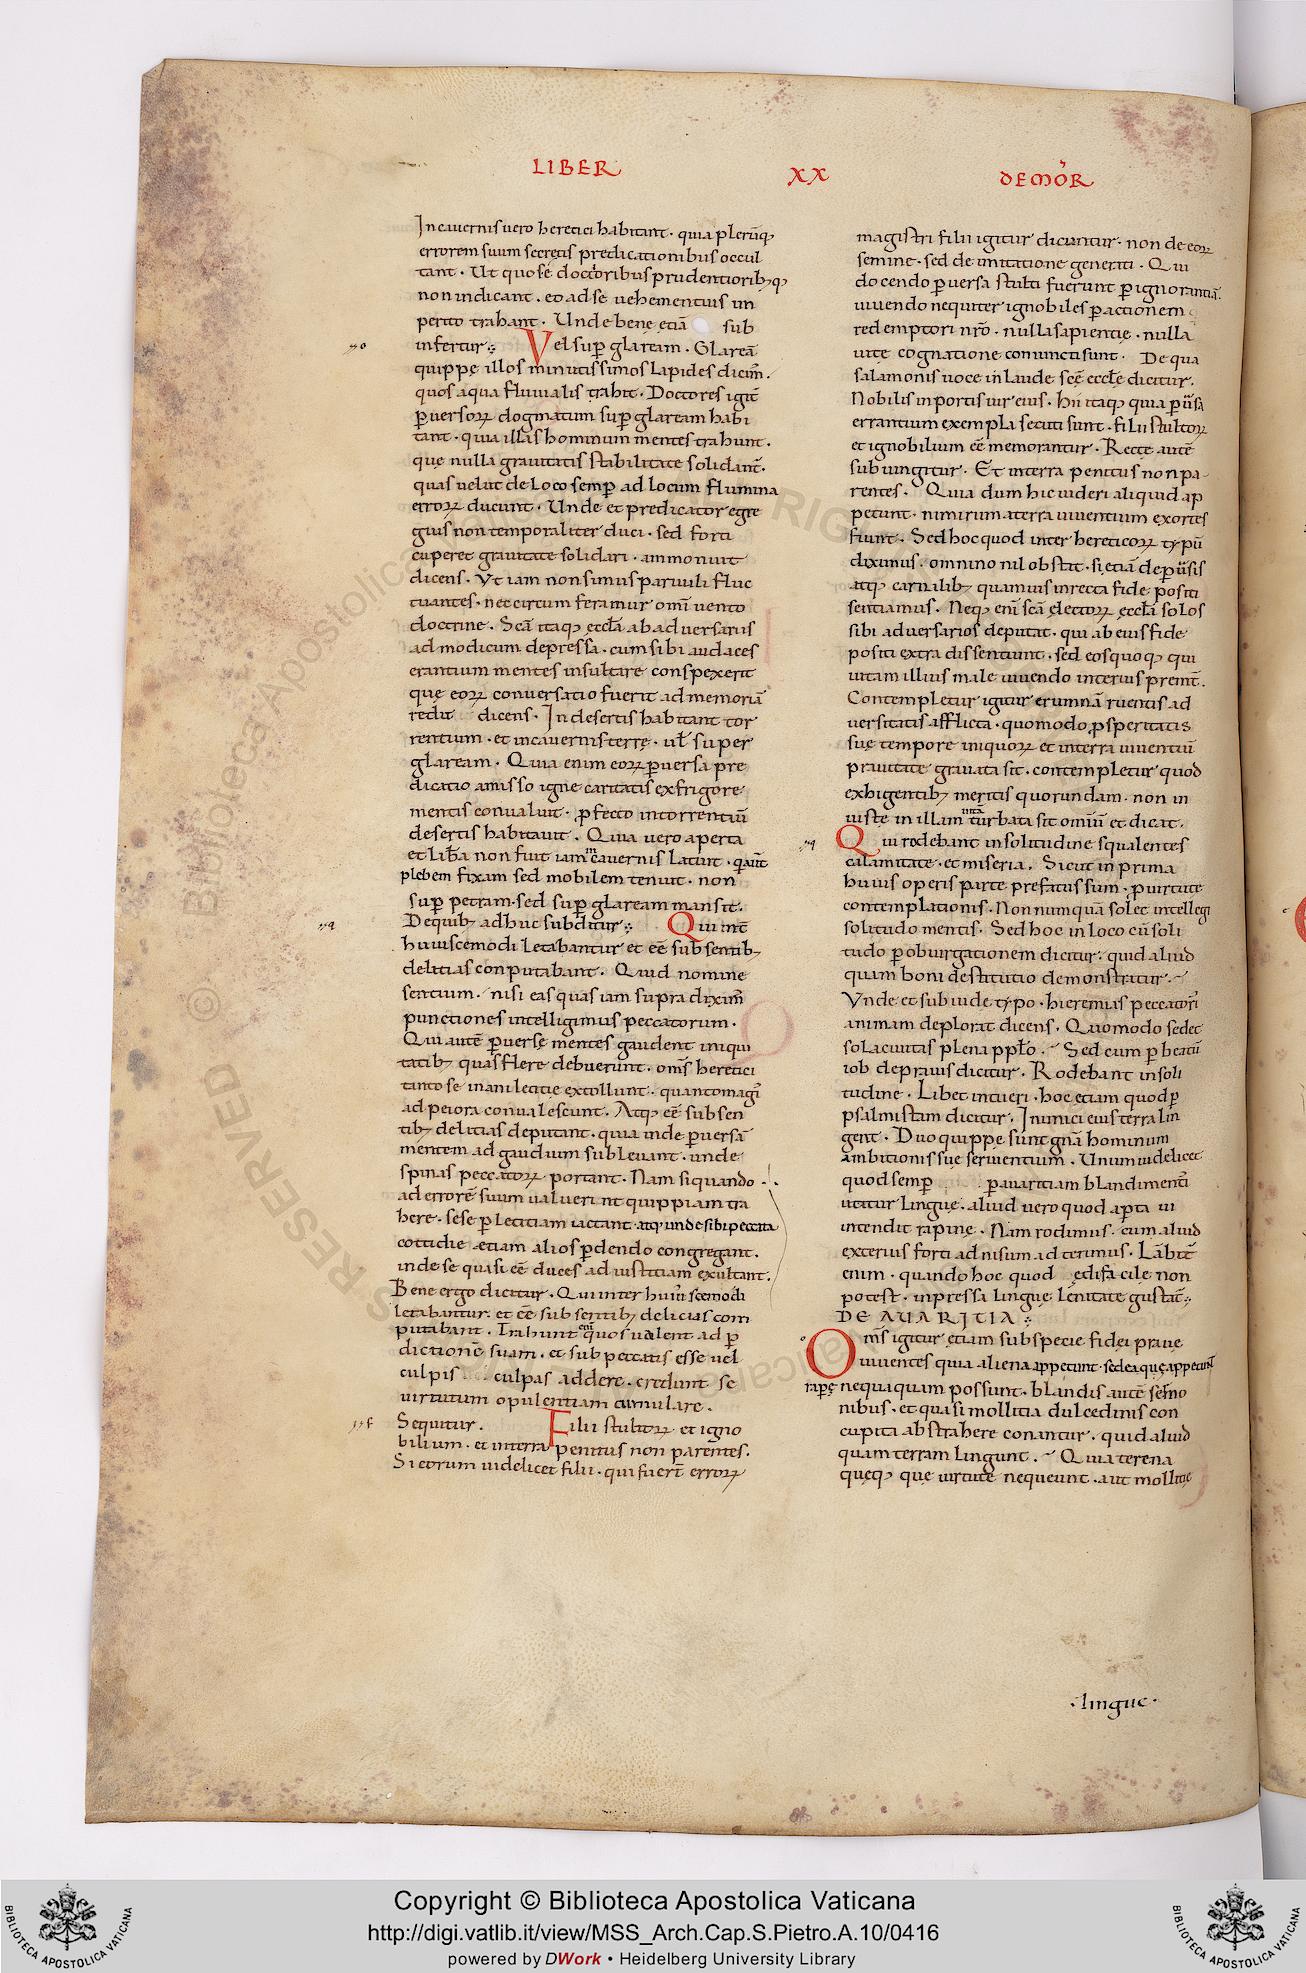 LIBER XX DE MOR̄
In cauernis uero heretici habitant · quia plerūq;
errorem suum secretis predicationibus occul
tant · Ut quo se doctoribus prudentiorib; q;
non indicant · & ad se uehementius im
perito trahant · Unde bene etiā sub
infertur : Vel sup̄ glaream · Glareā
quippe illos minutissimos lapides dicim̄ ·
quos aqua fluuialis trahit · Doctores igit̄
p̄uersoꝝ dogmatum sup̄ glaream habi
tant · quia illas hominum mentes trahunt ·
que nulla grauitatis stabilitate solidant̄ ·
quas uelut de loco semp̄ ad locum flumina
erroꝝ ducunt · Unde et predicator egre
gius non temporaliter duci · sed forti
cuperet grauitate solidari · ammonuit
dicens · Vt iam non simus paruuli fluc
tuantes · nec circum feramur omī uento
doctrine · Scā itaq; eccl̄a ab aduersariis
ad modicum depressa · cum sibi audaces
erantium mentes insultare conspexerit
que eoꝝ conuersatio fuerit ad memoriā
redit dicens · In desertis habitant tor
rentium · et in cauernis terrę · ul̄ super
glaream · Quia enim eoꝝ p̄uersa pre
dicatio amisso igne caritatis ex frigore
mentis conualuit · p̄fecto in torrentiū
desertis habitauit · Quia uero aperta
et lib̄a non fuit iam in cauernis latuit · q̄ aut̄
plebem fixam sed mobilem tenuit · non
sup̄ petram · sed sup̄ glaream mansit ·
De quib; adhuc subditur : Qui int̄
huiuscemodi letabantur et eē sub sentib;
delitias conputabant · Quid nomine
sentium · nisi eas quas iam supra dixim̄
punctiones intelligimus peccatorum ·
Qui autē p̄uerse mentes gaudent iniqui
tatib; quas flere debuerunt · om̄s heretici
tanto se inani letitie extollunt · quanto magi᷒
ad peiora conualescunt · Atq; eē sub sen
tib; delitias deputant · quia inde p̄uersā
mentem ad gaudium subleuant · unde
spinas peccatoꝝ portant · Nam si quando
ad errorē suum ualuerint quippiam tra
here · sese p̄ letitiam iactant · atq; unde sibi peccata
cottidie etiam alios p̄dendo congregant ·
inde se quasi eē duces ad iustitiam exultant ·
Bene ergo dicitur · Qui inter huiuscemodi
letabantur · et eē sub sentib; delicias com
putabant · Trahunt enī quos ualent ad p̄
dictionē suam · et sub peccatis esse uel
culpis culpas addere · credunt se
uirtutum opulentiam cumulare ·
Sequitur · Filii stultoꝝ et igno
bilium · et in terra penitus non parentes ·
Si eorum uidelicet filii · qui fuer̄t erroꝝ
magistri filii igitur dicuntur · non de eoꝝ
semine · sed de imitatione generati · Qui
docendo p̄uersa stulti fuerunt p̄ ignorantiā ·
uiuendo nequiter ignobiles p̄ actionem
redemptori nr̄o · nulla sapientie · nulla
uite cognatione coniuncti sunt · De qua
salamonis uoce in laude scē eccl̄e dicitur ·
Nobilis in portis uir eius · Hii itaq; quia p̄uersa
errantium exempla secuti sunt · filii stultoꝝ
et ignobilium eē memorantur · Recte autē
subiungitur · Et in terra penitus non pa
rentes · Quia dum hic uideri aliquid ap
petunt · nimirum a terra uiuentium exortes
fiunt · Sed hoc quod inter hereticoꝝ typū
diximus · omnino nil obstat · si etiā de p̄uersis
atq; carnalib; quamuis in recta fide positi
sentiamus · Neq; enī scā electoꝝ eccl̄a solos
sibi aduersarios deputat · qui ab eius fide
positi extra dissentiunt · sed eos quoq; qui
uitam illius male uiuendo interius premt̄ ·
Contempletur igitur erumnā ruentis ad
uersitatis afflicta · quomodo p̄speritatis
sue tempore iniquoꝝ et in terra uiuentiū
prauitate grauata sit · contempletur quod
exhigentib; meritis quorundam · non in
iuste in illam turbata sit omniū et dicat ·
Qui rodebant in solitudine squalentes
calamitate · et miseria · Sicut in prima
huius operis parte prefatus sum · p̄ uirtute
contemplationis · Non numquā solet intellegi
solitudo mentis · Sed hoc in loco cū soli
tudo p̄ obiurgationem dicitur · quid aliud
quam boni destitutio demonstratur ·
Vnde et sub iude typo · hieremias peccatori᷒
animam deplorat dicens · Quomodo sedet
sola ciuitas plena ppl̄o · Sed cum p̄ beatū
iob de prauis dicitur · Rodebant in soli
tudine · Libet intueri · hoc etiam quod p̄
psalmistam dicitur · Inimici eius terra lin
gent · Duo quippe sunt gn̄a hominum
ambitioni sue seruientium · Unum uidelicet
quod semp̄ p̄ auaritiam blandimentī
utitur lingue · aliud uero quod ap̄ta ui
intendit rapine · Nam rodimus · cum aliud
exterius forti adnisum adterimus · Lābit̄
enim · quando hoc quod edi facile non
potest · inpressa lingue lenitate gustat̄ :
DE AVARITIA :
Om̄s igitur etiam sub specie fidei praue
uiuentes quia aliena appetunt · sed ea que appetunt
rap̄e nequaquam possunt · blandis autē sermo
nibus · et quasi mollitia dulcedinis con
cupita abstrahere conantur · quid aliud
quam terram lingunt · Quia terena
queq; que uirtute nequeunt · aut mollitie
· lingue ·
Copyright © Biblioteca Apostolica Vaticana
http://digi.vatlib.it/view/MSS_Arch.Cap.S.Pietro.A.10/0416
powered by DWork • Heidelberg University Library
BIBLIOTECA APOSTOLICA VATICANA
BIBLIOTECA APOSTOLICA VATICANA